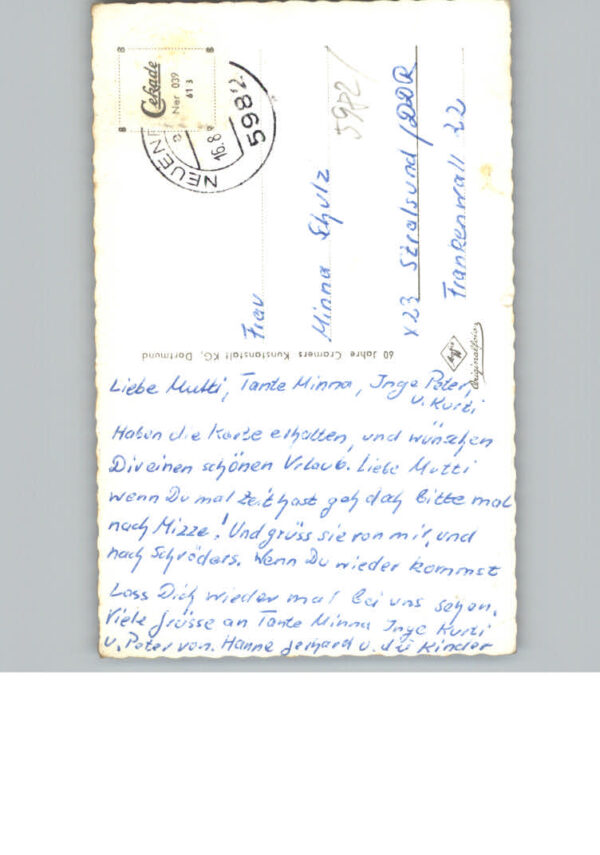 Cekade
Ner 039
61 3
NEUEN
16.8
5982
5982
Frau
Minna Schulz
x23 Stralsund / DDR
Frankenwall 22
60 Jahre Cramers Kunstanstalt KG, Dortmund
Agfa
Originalfoto
Liebe Mutti, Tante Minna, Inge Peter,
u. Kurti
Haben die Karte erhalten, und wünschen
Dir einen schönen Urlaub. Liebe Mutti
wenn Du mal Zeit hast geh doch bitte mal
nach Mizze! Und grüss sie von mir, und
nach Schröders. Wenn Du wieder kommst
Lass Dich wieder mal bei uns sehen.
Viele Grüsse an Tante Minna Inge Kurti
u. Peter von. Hanne Gerhard u. die Kinder